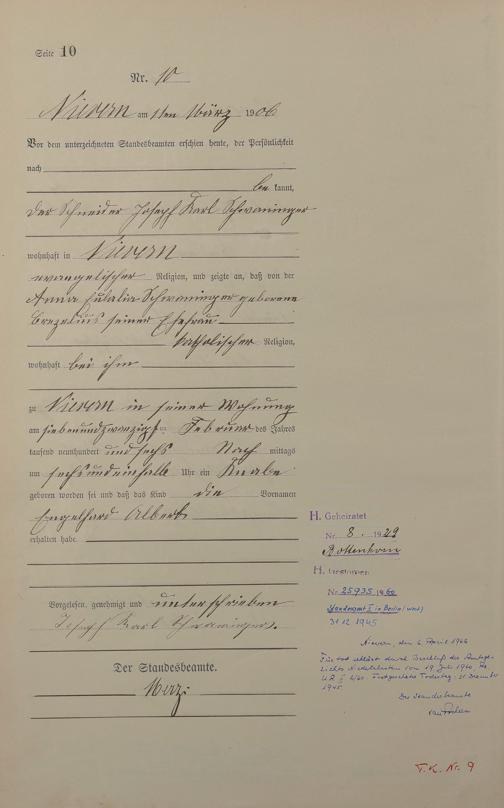 Seite 10
Nr. 10
Nievern am 1ten März 1906
Vor dem unterzeichneten Standesbeamten erschien heute, der Persönlichkeit
nach
be kannt,
der Schneider Joseph Karl Schwaninger
wohnhaft in Nievern
evangelischer Religion, und zeigte an, daß von der
Anna Eulalia Schwaninger geborene
seiner Ehefrau
katholischer Religion,
wohnhaft bei ihm
zu Nievern in seiner Wohnung
am siebenundzwanzigsten Februar des Jahres
tausend neunhundert und sechs Nach mittags
um sechs und einhalb Uhr ein Knabe
geboren worden sei und daß das Kind die Vornamen
Engelhard Albert
erhalten habe.
Vorgelesen, genehmigt und unterschrieben
Joseph Karl Schwaninger.
Der Standesbeamte.
Merz.
H. Geheiratet
Nr. 8. 1929
H.
Nr. 25935 1960
Standesamt I in Berlin (West)
31.12.1945
Nievern, den 6. April 1966
Für tot erklärt durch Beschluß des Amtsge-
richts vom 19. Juli 1960
Festgestellter Todestag: 31. Dezember
1945
Der Standesbeamte
T.K. Nr. 9